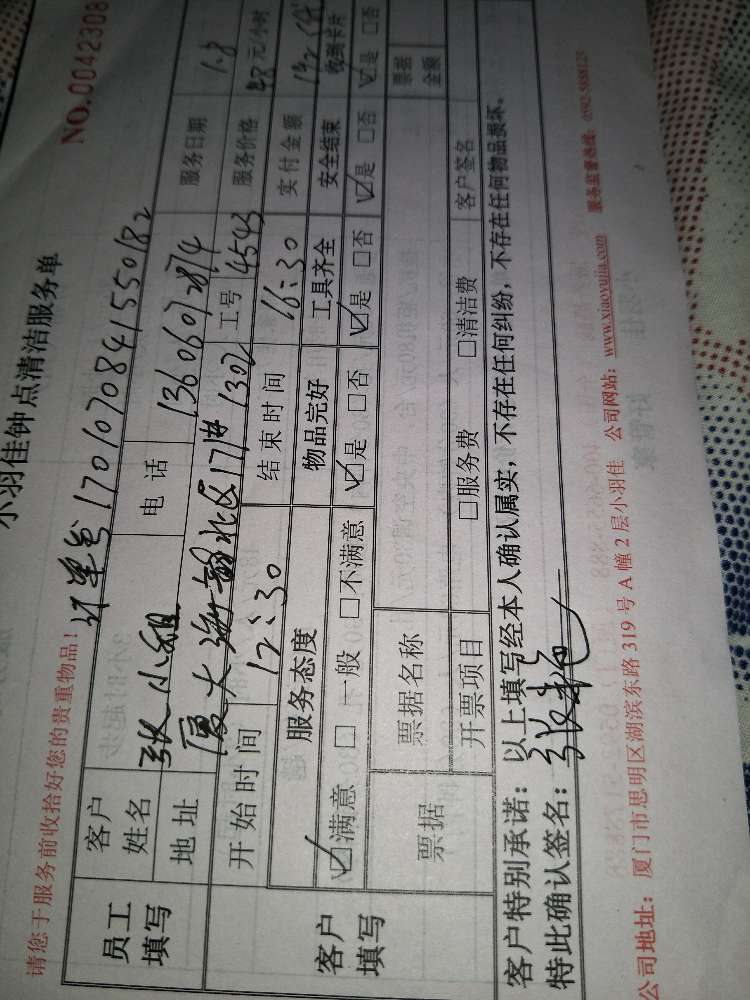 小羽佳钟点清洁服务单
NO.0042308
请您于服务前收拾好您的贵重物品!
订单号 1701070841550182
员工填写
客户姓名 张小姐 电话 13606072874 服务日期 1.8
地址 厦大海韵北区17# 1302 工号 4543 服务价格 元/小时
客户填写
开始时间 12:30 结束时间 16:30 实付金额
服务态度 物品完好 工具齐全 安全结束 收到卡片
☑满意 □一般 □不满意 ☑是 □否 ☑是 □否 ☑是 □否 ☑是 □否
票据 票据名称 票据金额
开票项目 □服务费 □清洁费 客户签名
客户特别承诺:以上填写经本人确认属实,不存在任何纠纷,不存在任何物品损坏。
特此确认签名:
公司地址:厦门市思明区湖滨东路 319 号 A 幢 2 层小羽佳 公司网站:www.xiaoyujia.com 服务监督热线:0592-5888123